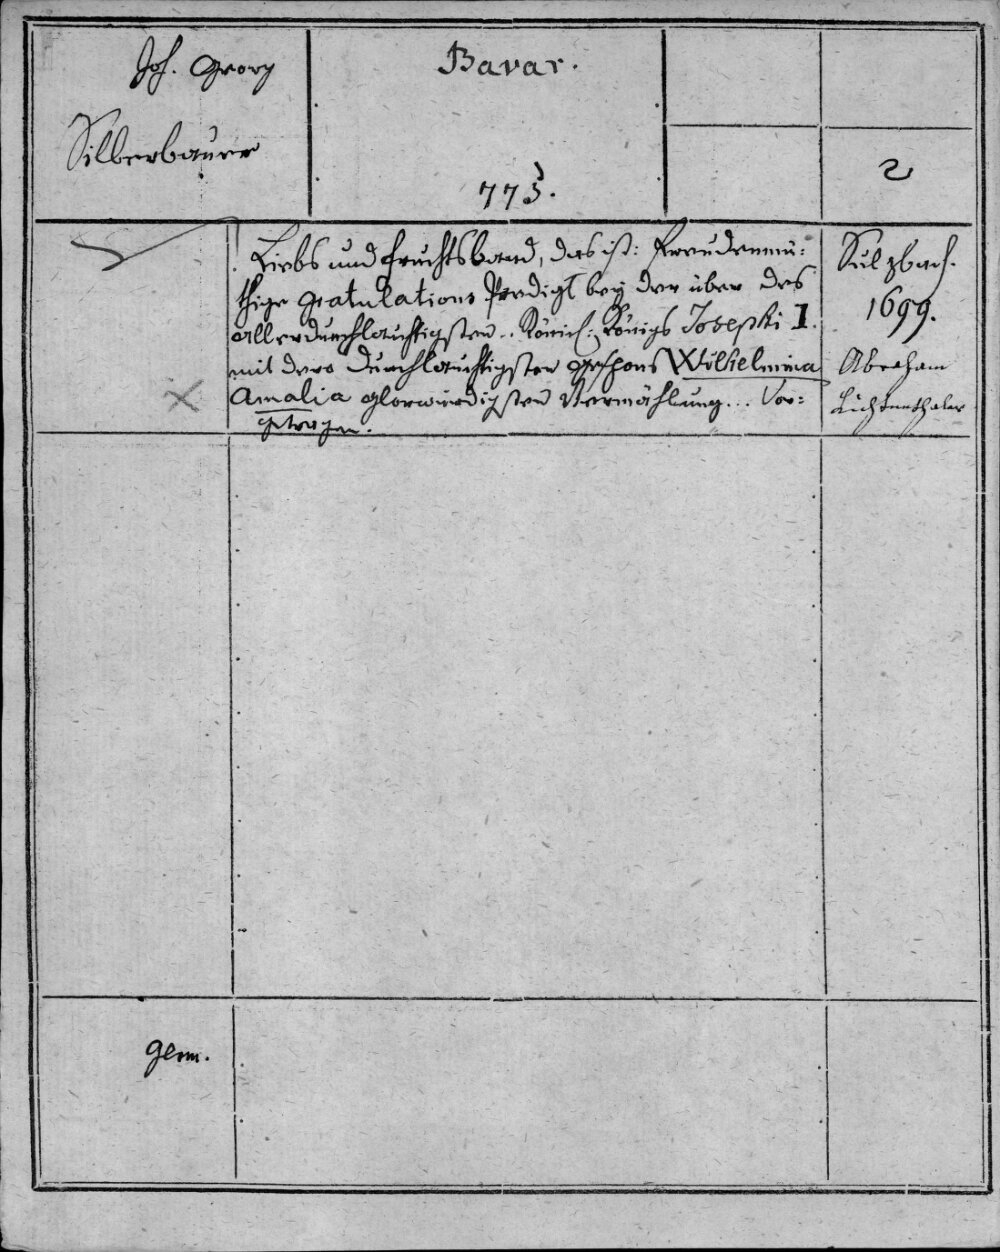 Joh. Georg
Silberbauer
Bavar.
775.
2
Liebs und Fruchtsband, das ist: Freudenmü-
thige Gratulations Predigt bey der über des
allerdurchlauchtigsten .. Römisch: Königs Josephi I.
mit dero Durchlauchtigster Gespons Wilhelmina
Amalia glorwürdigsten Vermählung... Vor-
getragen.
Sulzbach.
1699.
Abraham
Lichtenthaler
Germ.